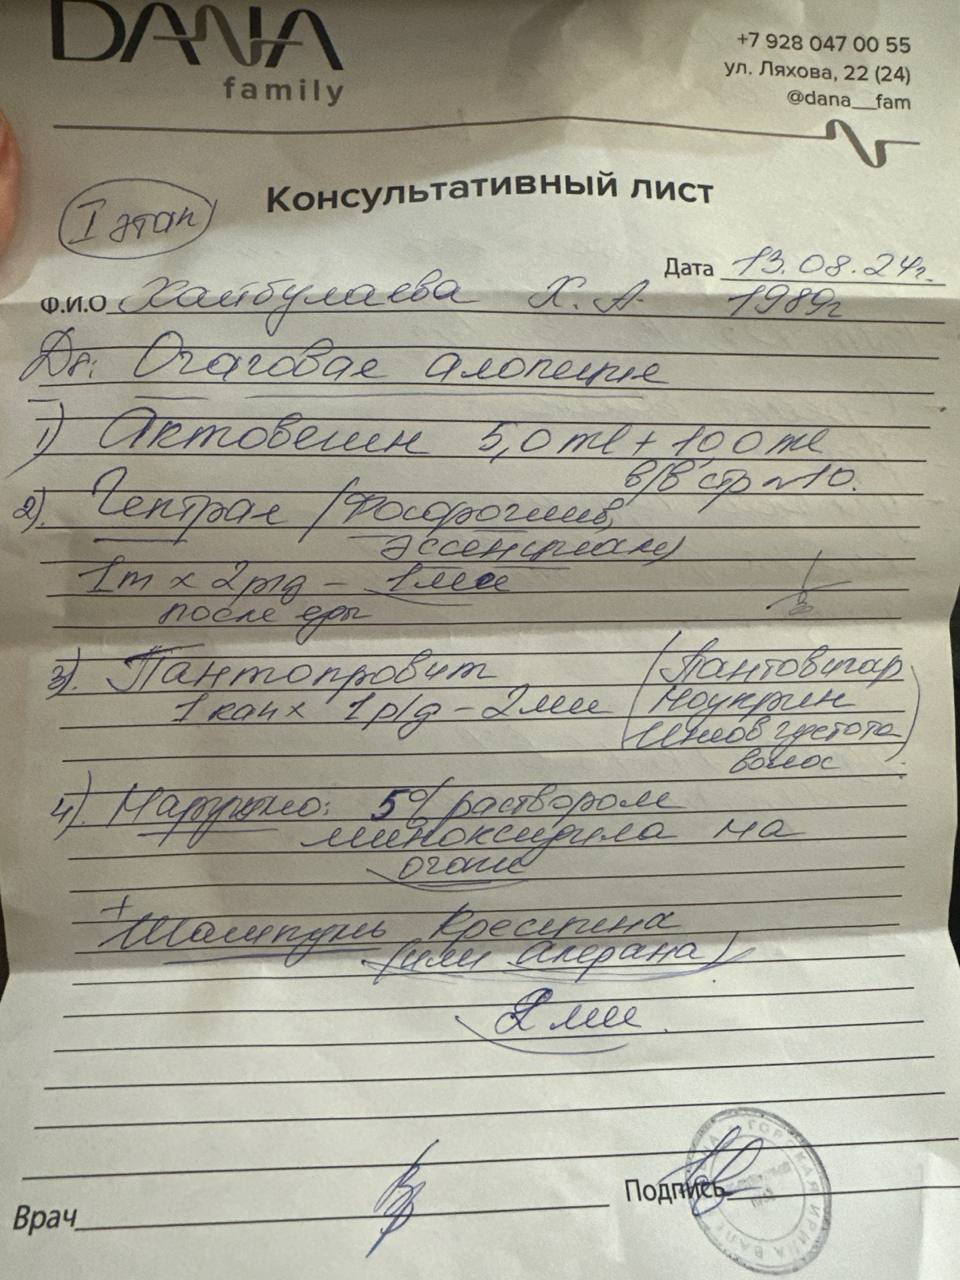 DANA
family
+7 928 047 00 55
ул. Ляхова, 22 (24)
@dana__fam
Консультативный лист
I этап
Дата 13.08.24г.
Ф.И.О Хайбулаева Х. А. 1989г
Ds: Очаговая алопеция
1) Актовегин 5,0 ml + 10,0 ml
в/в стр №10.
2). Гептрал (Фосфоглив,
Эссенциале)
1т х 2р/д - 1 мес
после еды
3). Пантопровит (Пантовигар
1 кап х 1 р/д - 2 мес Ноукрин
Инов густота
волос)
4). Наружно: 5% раствором
миноксидила на
очаги
+
Шампунь Кресцина
(или Алерана)
2 мес.
Врач
Подпись